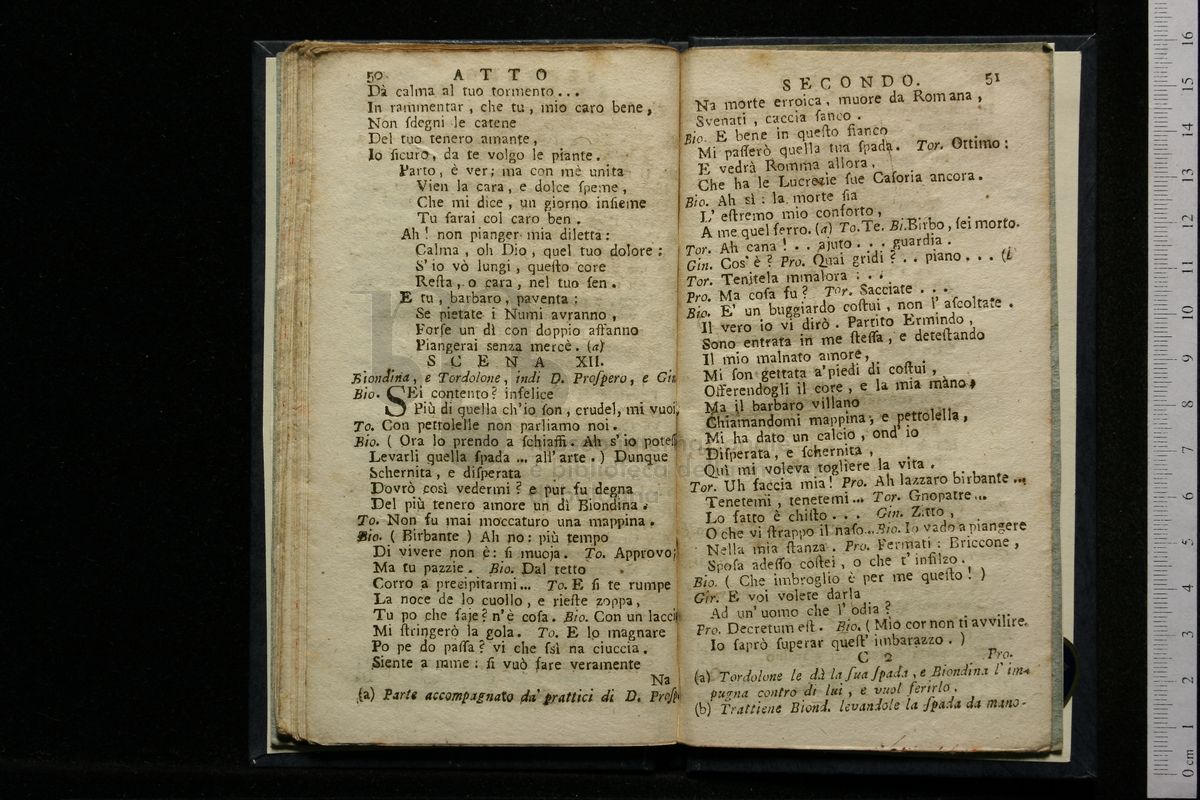 50 ATTO
Dà calma al tuo tormento...
In rammentar, che tu, mio caro bene,
Non ſdegni le catene
Del tuo tenero amante,
Io ſicuro, da te volgo le piante.
Parto, è ver; ma con mè unita
Vien la cara, e dolce ſpeme,
Che mi dice, un giorno inſieme
Tu ſarai col caro ben.
Ah! non pianger mia diletta:
Calma, oh Dio, quel tuo dolore:
S'io vò lungi, queſto core
Reſta, o cara, nel tuo ſen.
E tu, barbaro, paventa:
Se pietate i Numi avranno,
Forſe un dì con doppio affanno
Piangerai senza mercè. (a)
SCENA XII.
Biondina, e Tordolone, indi D. Proſpero, e Gin
Bio. SEi contento? infelice
Più di quella ch'io ſon, crudel, mi vuoi,
To. Con pettolelle non parliamo noi.
Bio. ( Ora lo prendo a ſchiaffi. Ah s'io poteſ
Levarli quella ſpada ... all'arte. ) Dunque
Schernita, e diſperata
Dovrò così vedermi? e pur fu degna
Del più tenero amore un dì Biondina.
To. Non fu mai moccaturo una mappina.
Bio. ( Birbante ) Ah no: più tempo
Di vivere non è: ſi muoja. To. Approvo;
Ma tu pazzie. Bio. Dal tetto
Corro a precipitarmi... To. E ſi te rumpe
La noce de lo cuollo, e rieſte zoppa,
Tu po che ſaje? n'è coſa. Bio. Con un lacci
Mi ſtringerò la gola. To. E lo magnare
Po pe do paſſa? vi che ſsì na ciuccia.
Siente a mme: ſi vuò fare veramente
Na
(a) Parte accompagnato da' prattici di D. Proſp
SECONDO. 51
Na morte erroica, muore da Romana,
Svenati, caccia ſanco.
Bio. E bene in queſto fianco
Mi paſſerò quella tua ſpada. Tor. Ottimo:
E vedrà Romma allora,
Che ha le Lucrezie ſue Caſoria ancora.
Bio. Ah sì: la morte ſia
L' eſtremo mio conforto,
A me quel ferro. (a) To. Te. Bi. Birbo, ſei morto.
Tor. Ah cana! . . ajuto . . . guardia.
Gin. Cos' è? Pro. Quai gridi? . . piano . . . (
Tor. Tenitela mmalora : . .
Pro. Ma coſa fu? Tor. Sacciate . . .
Bio. E' un buggiardo coſtui, non l' aſcoltate.
Il vero io vi dirò. Partito Ermindo,
Sono entrata in me ſteſſa, e deteſtando
Il mio malnato amore,
Mi ſon gettata a' piedi di coſtui,
Offerendogli il core, e la mia mano,
Ma il barbaro villano
Chiamandomi mappina, e pettolella,
Mi ha dato un calcio, ond' io
Diſperata, e ſchernita,
Quì mi voleva togliere la vita.
Tor. Uh faccia mia! Pro. Ah lazzaro birbante...
Tenetemi, tenetemi... Tor. Gnopatre...
Lo fatto è chiſto . . . Gin. Zitto,
O che vi ſtrappo il naſo... Bio. Io vado a piangere
Nella mia ſtanza. Pro. Fermati: Briccone,
Spoſa adeſſo coſtei, o che t' infilzo.
Bio. ( Che imbroglio è per me queſto! )
Gir. E voi volete darla
Ad un' uomo che l' odia?
Pro. Decretum eſt. Bio. ( Mio cor non ti avvilire,
Io ſaprò ſuperar queſt' imbarazzo. )
C 2 Pro.
(a) Tordolone le dà la ſua ſpada, e Biondina l' im-
pugna contro di lui, e vuol ferirlo.
(b) Trattiene Biond. levandole la ſpada da mano.